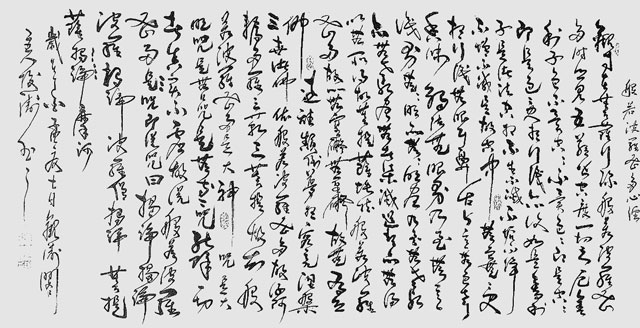 般若波羅蜜多心經
觀自在菩薩行深般若波羅蜜
多時照見五蘊皆空度一切苦厄舍
利子色不異空空不異色色
即是空空即是色受想行識亦復如是舍利
子是諸法空相不生不滅不垢不淨
不增不減是故空中無色無受
想行識無眼耳鼻舌身意無色聲
香味觸法無眼界乃至無意
識界無無明亦無無明盡乃至無老死
亦無老死盡無苦集滅道無智亦無得
以無所得故菩提薩埵依般若波羅
蜜多故心無罣礙無罣礙故無有恐
怖遠離顛倒夢想究竟涅槃
三世諸佛依般若波羅蜜多故得阿
耨多羅三藐三菩提故知般
若波羅蜜多是大神咒是大
明咒是無上咒是無等等咒能除一切
苦真實不虛故說般若波羅
蜜多咒即說咒曰揭諦揭諦
波羅揭諦波羅僧揭諦菩提
薩